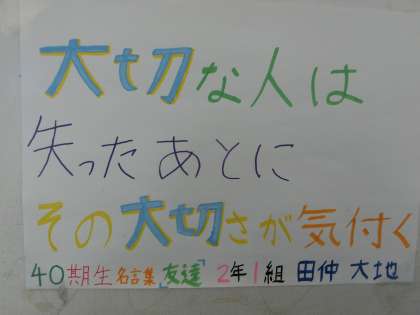 大切な人は
失ったあとに
その大切さが気付く
40期生名言集「友達」2年1組 田仲 大地